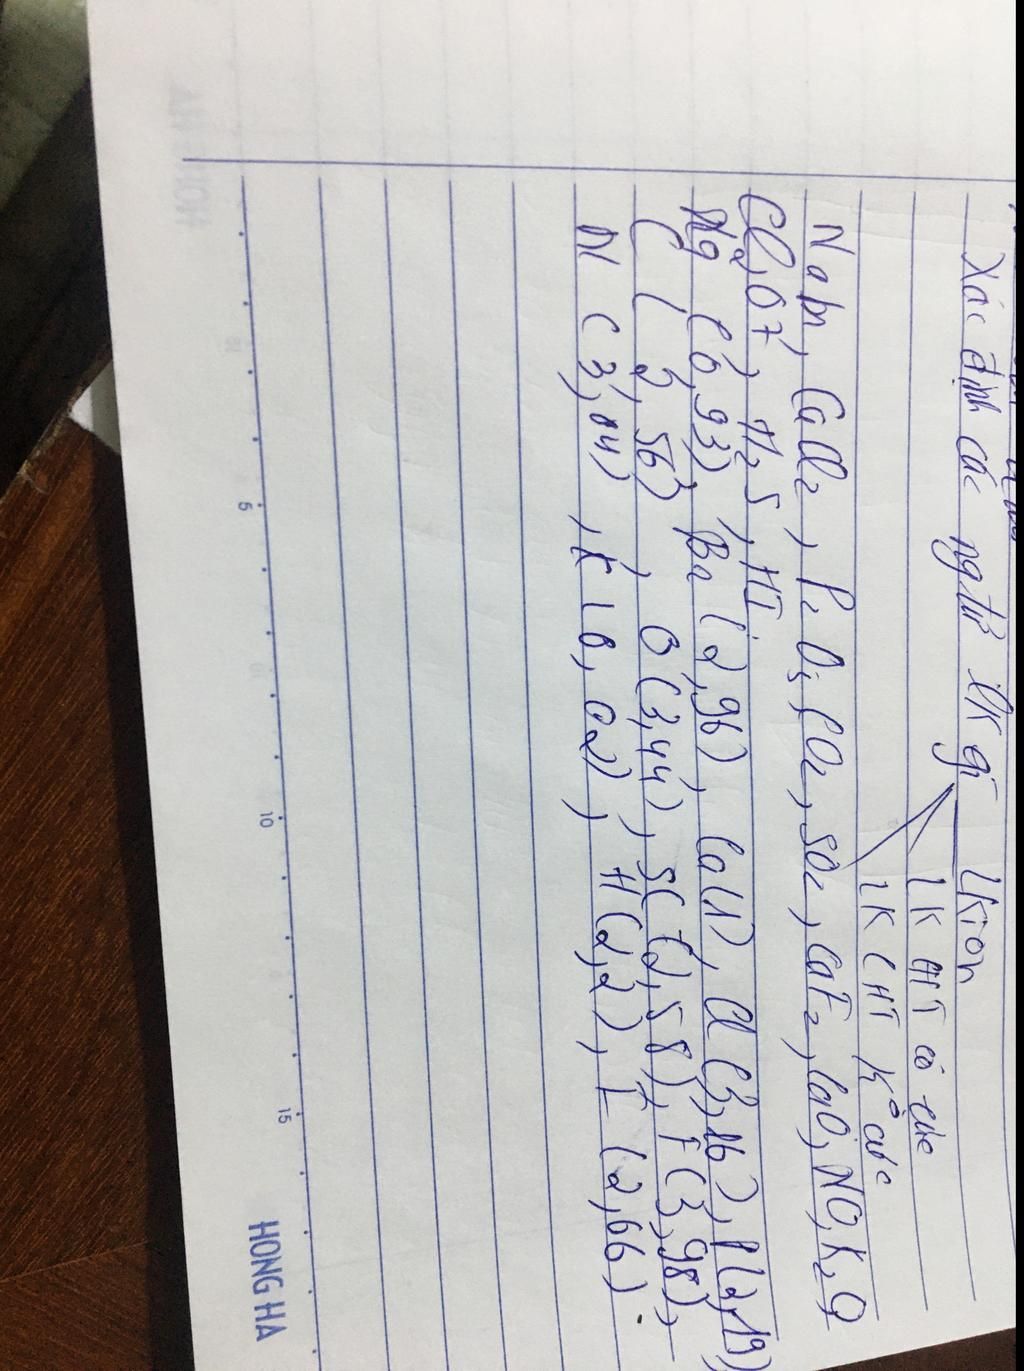 Xác định các ngtử lk gì lk ion
lk CHT có cực
lk CHT k° cực
NaBr, CaCl2, P2O5, CO2, SO2, CaF2, CaO, NO, K2O
Cl2O7, H2S, HI.
Br (2,96), Ca(1), Cl (3,16), P(2,19)
C ( 2,56) , O(3,44), S( (2,58), F(3,98),
N (3,04) , K (0,02), H(2,2), I (2,66).
5 10 15
HONG HA